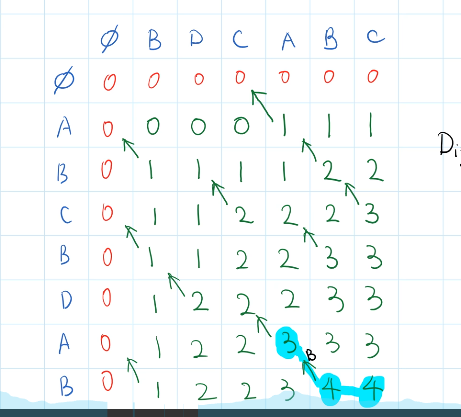 Ø B D C A B C
Ø 0 0 0 0 0 0 0
A 0 0 0 0 1 1 1
Di
B 0 1 1 1 1 2 2
C 0 1 1 2 2 2 3
B 0 1 1 2 2 3 3
D 0 1 2 2 2 3 3
A 0 1 2 2 3 3 3
B
B 0 1 2 2 3 4 4